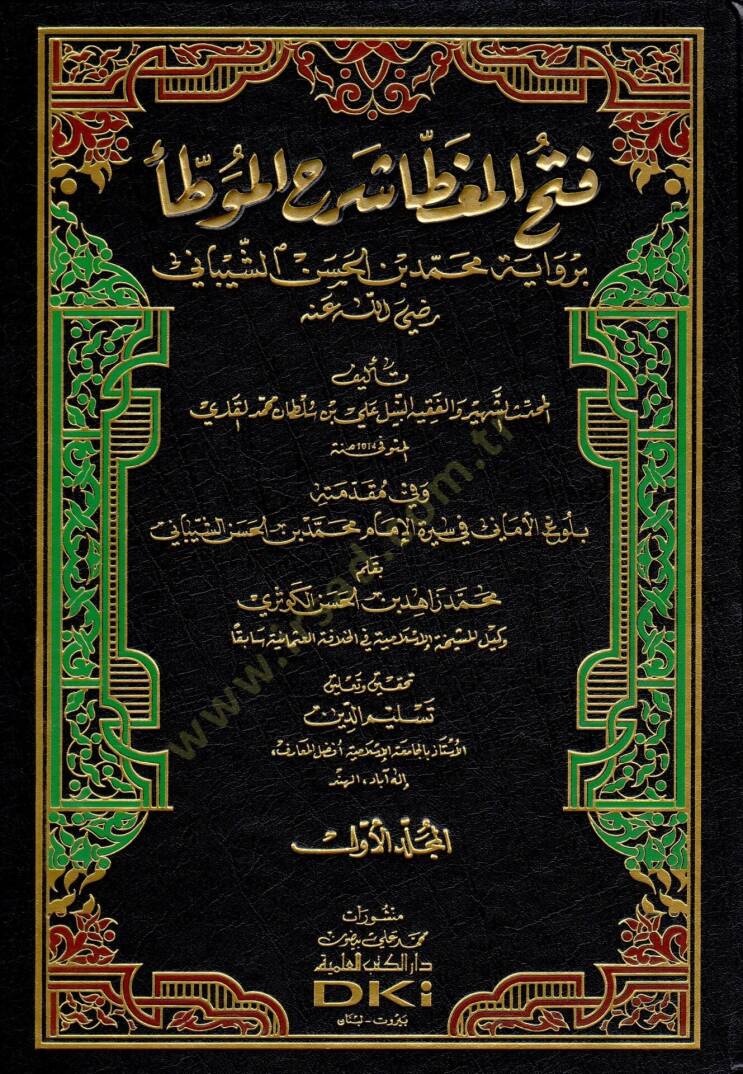 فتح المغطّا شرح الموطّأ
برواية محمّد بن الحسن الشّيباني
رضي الله عنه
تأليف
المحدّث الشّهير والفقيه النّبيل علي بن سلطان محمّد القاري
المتوفى 1014 سنة
وفي مقدمته
بلوغ الأماني في سيرة الإمام محمّد بن الحسن الشيباني
بقلم
محمّد زاهد بن الحسن الكوثري
وكيل المشيخة الإسلامية في الخلافة العثمانية سابقًا
تحقيق وتعليق
تسليم الدّين
الأستاذ بالجامعة الإسلامية أفضل المعارف،
إله آباد، الهند
المجلّد الأوّل
منشورات
محمد علي بيضون
دار الكتب العلمية
DKi
بيروت - لبنان
www.irsad.com.tr